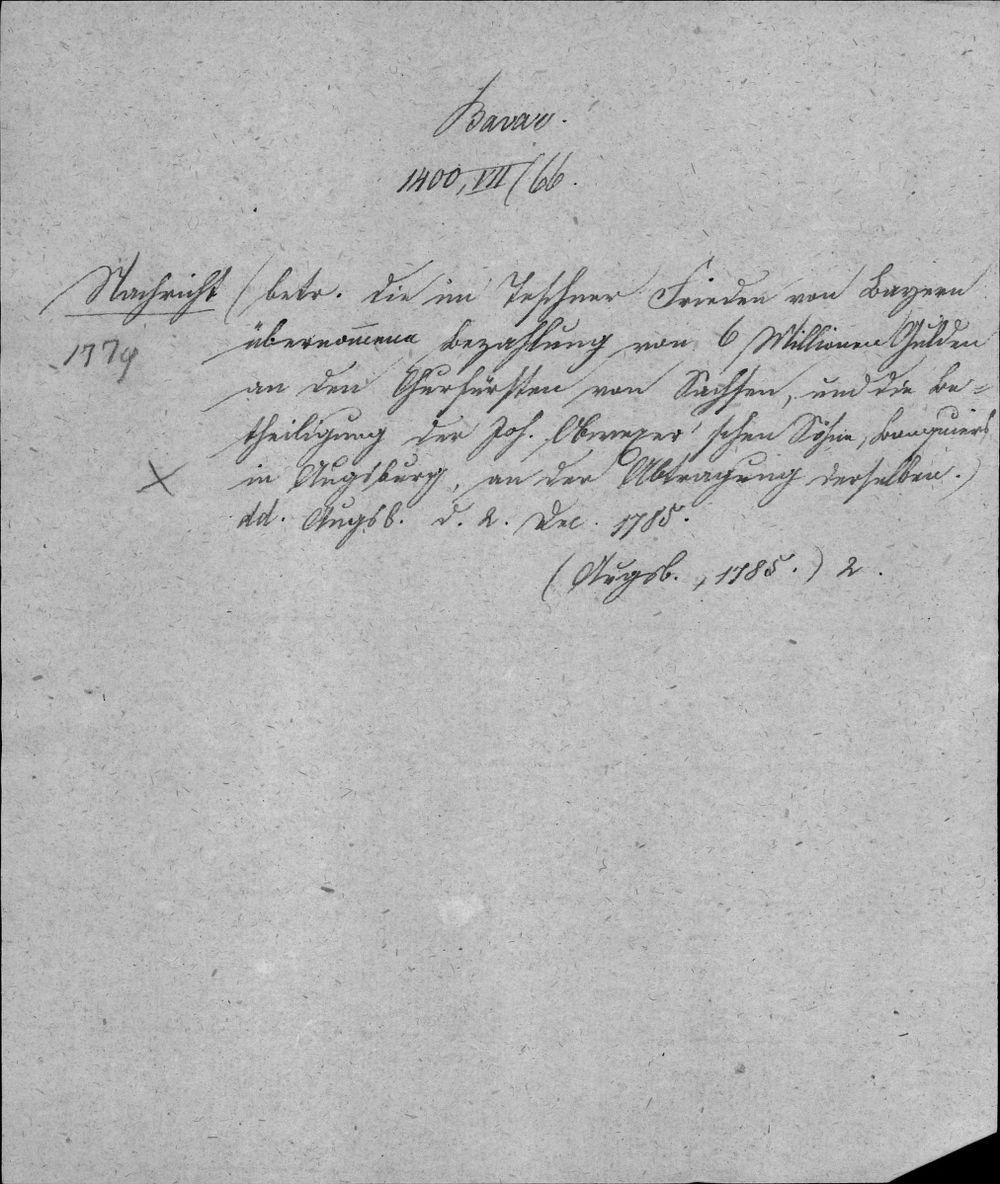 Bavar.
1400, VII/66.
Nachricht (betr. die im Teschner Frieden von Bayern
1779
übernom̄ene Bezahlung von 6 Millionen Gulden
an den Churfürsten von Sachsen, und die Be-
theiligung der Joh. Obwexer'schen Söhne, Banquiers
X
in Augsburg, an der Abtragung derselben.)
dd. Augsb. d. 2. Dec. 1785.
(Augsb., 1785.) 2.